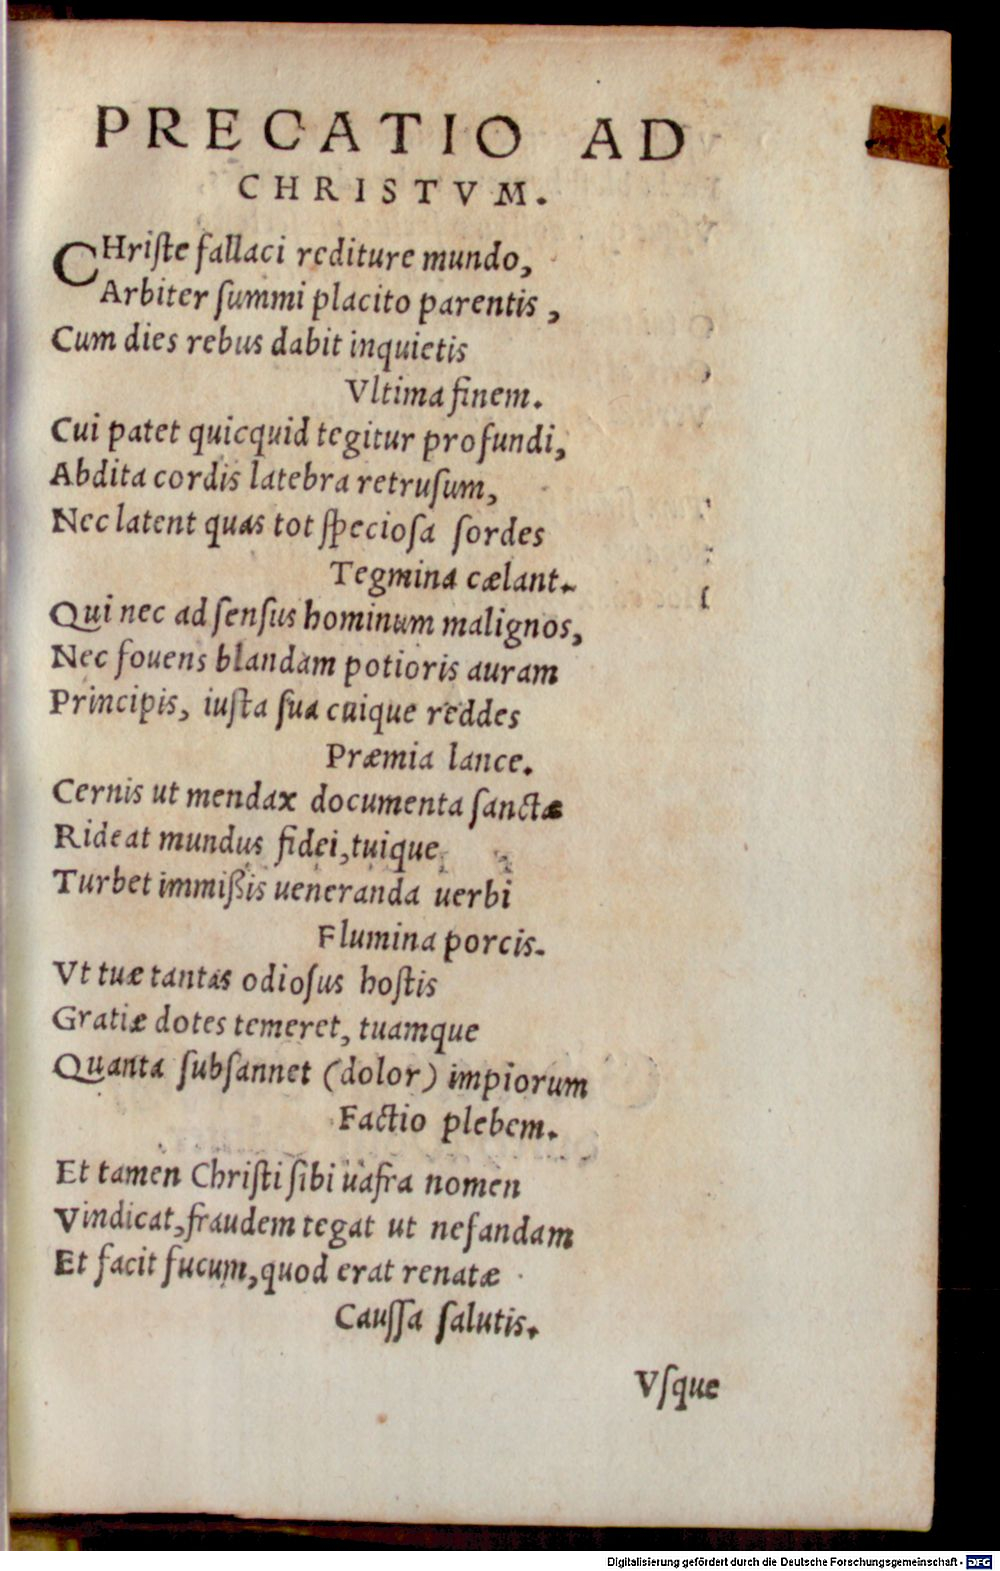 PRECATIO AD
CHRISTVM.
CHriſte fallaci rediture mundo,
Arbiter ſummi placito parentis,
Cum dies rebus dabit inquietis
Vltima finem.
Cui patet quicquid tegitur profundi,
Abdita cordis latebra retruſum,
Nec latent quas tot ſpecioſa ſordes
Tegmina cælant.
Qui nec ad ſenſus hominum malignos,
Nec fouens blandam potioris auram
Principis, iuſta ſua cuique reddes
Præmia lance.
Cernis ut mendax documenta ſanctæ
Rideat mundus fidei, tuique
Turbet immißis ueneranda uerbi
Flumina porcis.
Vt tuæ tantas odioſus hoſtis
Gratiæ dotes temeret, tuamque
Quanta ſubſannet (dolor) impiorum
Factio plebem.
Et tamen Chriſti ſibi uafra nomen
Vindicat, fraudem tegat ut nefandam
Et facit fucum, quod erat renatæ
Cauſſa ſalutis.
Vſque
Digitalisierung gefördert durch die Deutsche Forschungsgemeinschaft - DFG